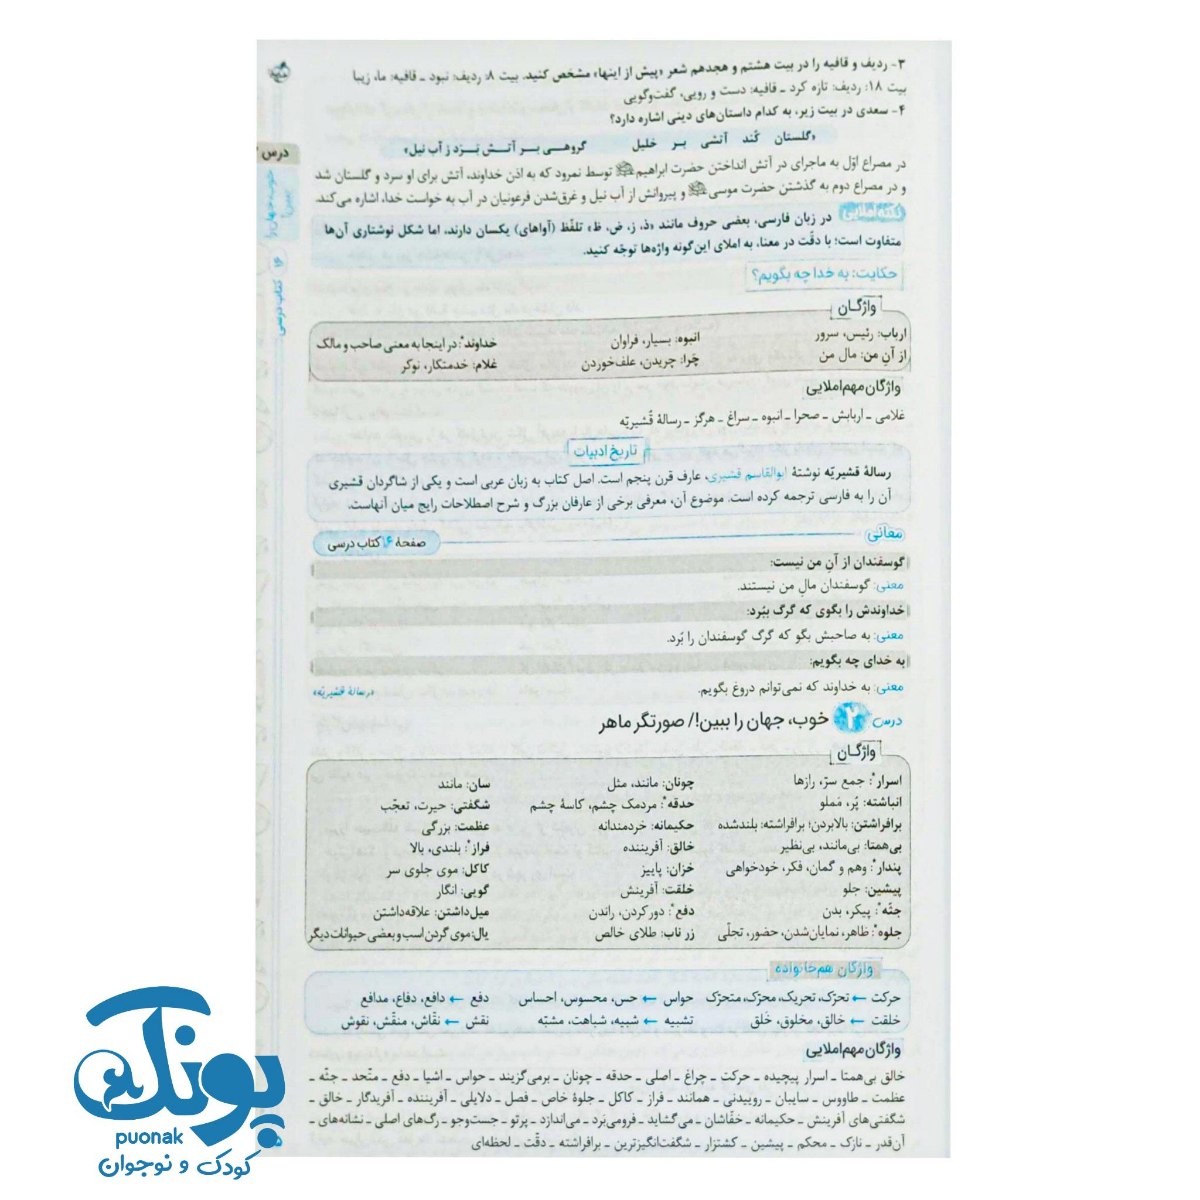 ۳- ردیف و قافیه را در بیت هشتم و هجدهم شعر «پیش از اینها» مشخص کنید. بیت ۸: ردیف: نبود ـ قافیه: ما، زیبا
بیت ۱۸: ردیف: تازه کرد ـ قافیه: دست و رویی، گفت‌وگویی
۴- سعدی در بیت زیر، به کدام داستان‌های دینی اشاره دارد؟
«گلستان کُند آتشی بر خلیل گروهی بر آتش بَرَد ز آب نیل»
در مصراع اوّل به ماجرای در آتش انداختن حضرت ابراهیم توسط نمرود که به اذن خداوند، آتش برای او سرد و گلستان شد
و در مصراع دوم به گذشتن حضرت موسی و پیروانش از آب نیل و غرق‌شدن فرعونیان در آب به خواست خدا، اشاره می‌کند.
نکته املایی در زبان فارسی، بعضی حروف مانند «ذ، ز، ض، ظ» تلفّظ (آواهای) یکسان دارند، اما شکل نوشتاری آن‌ها
متفاوت است؛ با دقّت در معنا، به املای این‌گونه واژه‌ها توجّه کنید.
حکایت: به خدا چه بگویم؟
واژگان
ارباب: رئیس، سرور انبوه: بسیار، فراوان خداوند*: در اینجا به معنی صاحب و مالک
از آنِ من: مال من چَرا: چریدن، علف‌خوردن غلام: خدمتکار، نوکر
واژگان مهم املایی
غلامی ـ اربابش ـ صحرا ـ انبوه ـ سراغ ـ هرگز ـ رسالهٔ قُشیریّه
تاریخ ادبیات
رسالهٔ قشیریّه نوشتهٔ ابوالقاسم قشیری، عارف قرن پنجم است. اصل کتاب به زبان عربی است و یکی از شاگردان قشیری
آن را به فارسی ترجمه کرده است. موضوع آن، معرفی برخی از عارفان بزرگ و شرح اصطلاحات رایج میان آنهاست.
معانی صفحهٔ ۱۶ کتاب درسی
گوسفندان از آنِ من نیست:
معنی: گوسفندان مالِ من نیستند.
خداوندش را بگوی که گرگ ببُرد:
معنی: به صاحبش بگو که گرگ گوسفندان را بُرد.
به خدای چه بگویم:
معنی: به خداوند که نمی‌توانم دروغ بگویم. «رسالهٔ قشیریّه»
درس ۲ خوب، جهان را ببین!/ صورتگر ماهر
واژگان
اسرار*: جمع سرّ، رازها چونان: مانند، مثل سان: مانند
انباشته: پُر، مَملو حدقه*: مردمک چشم، کاسهٔ چشم شگفتی: حیرت، تعجّب
برافراشتن: بالابردن؛ برافراشته: بلندشده حکیمانه: خردمندانه عظمت: بزرگی
بی‌همتا: بی‌مانند، بی‌نظیر خالق: آفریننده فراز*: بلندی، بالا
پندار*: وهم و گمان، فکر، خودخواهی خزان: پاییز کاکل: موی جلوی سر
پیشین: جلو خلقت: آفرینش گویی: انگار
جثّه*: پیکر، بدن دفع*: دور کردن، راندن میل‌داشتن: علاقه‌داشتن
جلوه*: ظاهر، نمایان‌شدن، حضور، تجلّی زر ناب: طلای خالص یال: موی گردن اسب و بعضی حیوانات دیگر
واژگان هم‌خانواده
حرکت ← تحرّک، تحریک، محرّک، متحرّک حواس ← حس، محسوس، احساس دفع ← دافع، دفاع، مدافع
خلقت ← خالق، مخلوق، خَلق تشبیه ← شبیه، شباهت، مشبّه نقش ← نقّاش، منقّش، نقوش
واژگان مهم املایی
خالق بی‌همتا ـ اسرار پیچیده ـ حرکت ـ چراغ ـ اصلی ـ حدقه ـ چونان ـ برمی‌گزیند ـ حواس ـ اشیا ـ دفع ـ متّحد ـ جثّه ـ
عظمت ـ طاووس ـ سایبان ـ روییدنی ـ همانند ـ فراز ـ کاکل ـ جلوهٔ خاص ـ فصل ـ دلایلی ـ آفریننده ـ آفریدگار ـ خالق ـ
شگفتی‌های آفرینش ـ حکیمانه ـ خفّاشان ـ می‌گشاید ـ فرومی‌بَرد ـ می‌اندازد ـ پرتو ـ جست‌وجو ـ رگ‌های اصلی ـ نشانه‌های ـ
آن‌قدر ـ نازک ـ محکم ـ پیشین ـ کشتزار ـ شگفت‌انگیزترین ـ برافراشته ـ دقّت ـ لحظه‌ای
درس
خوب، جهان را ببین!
۱۶ کتاب درسی
پونک
puonak
کودک و نوجوان